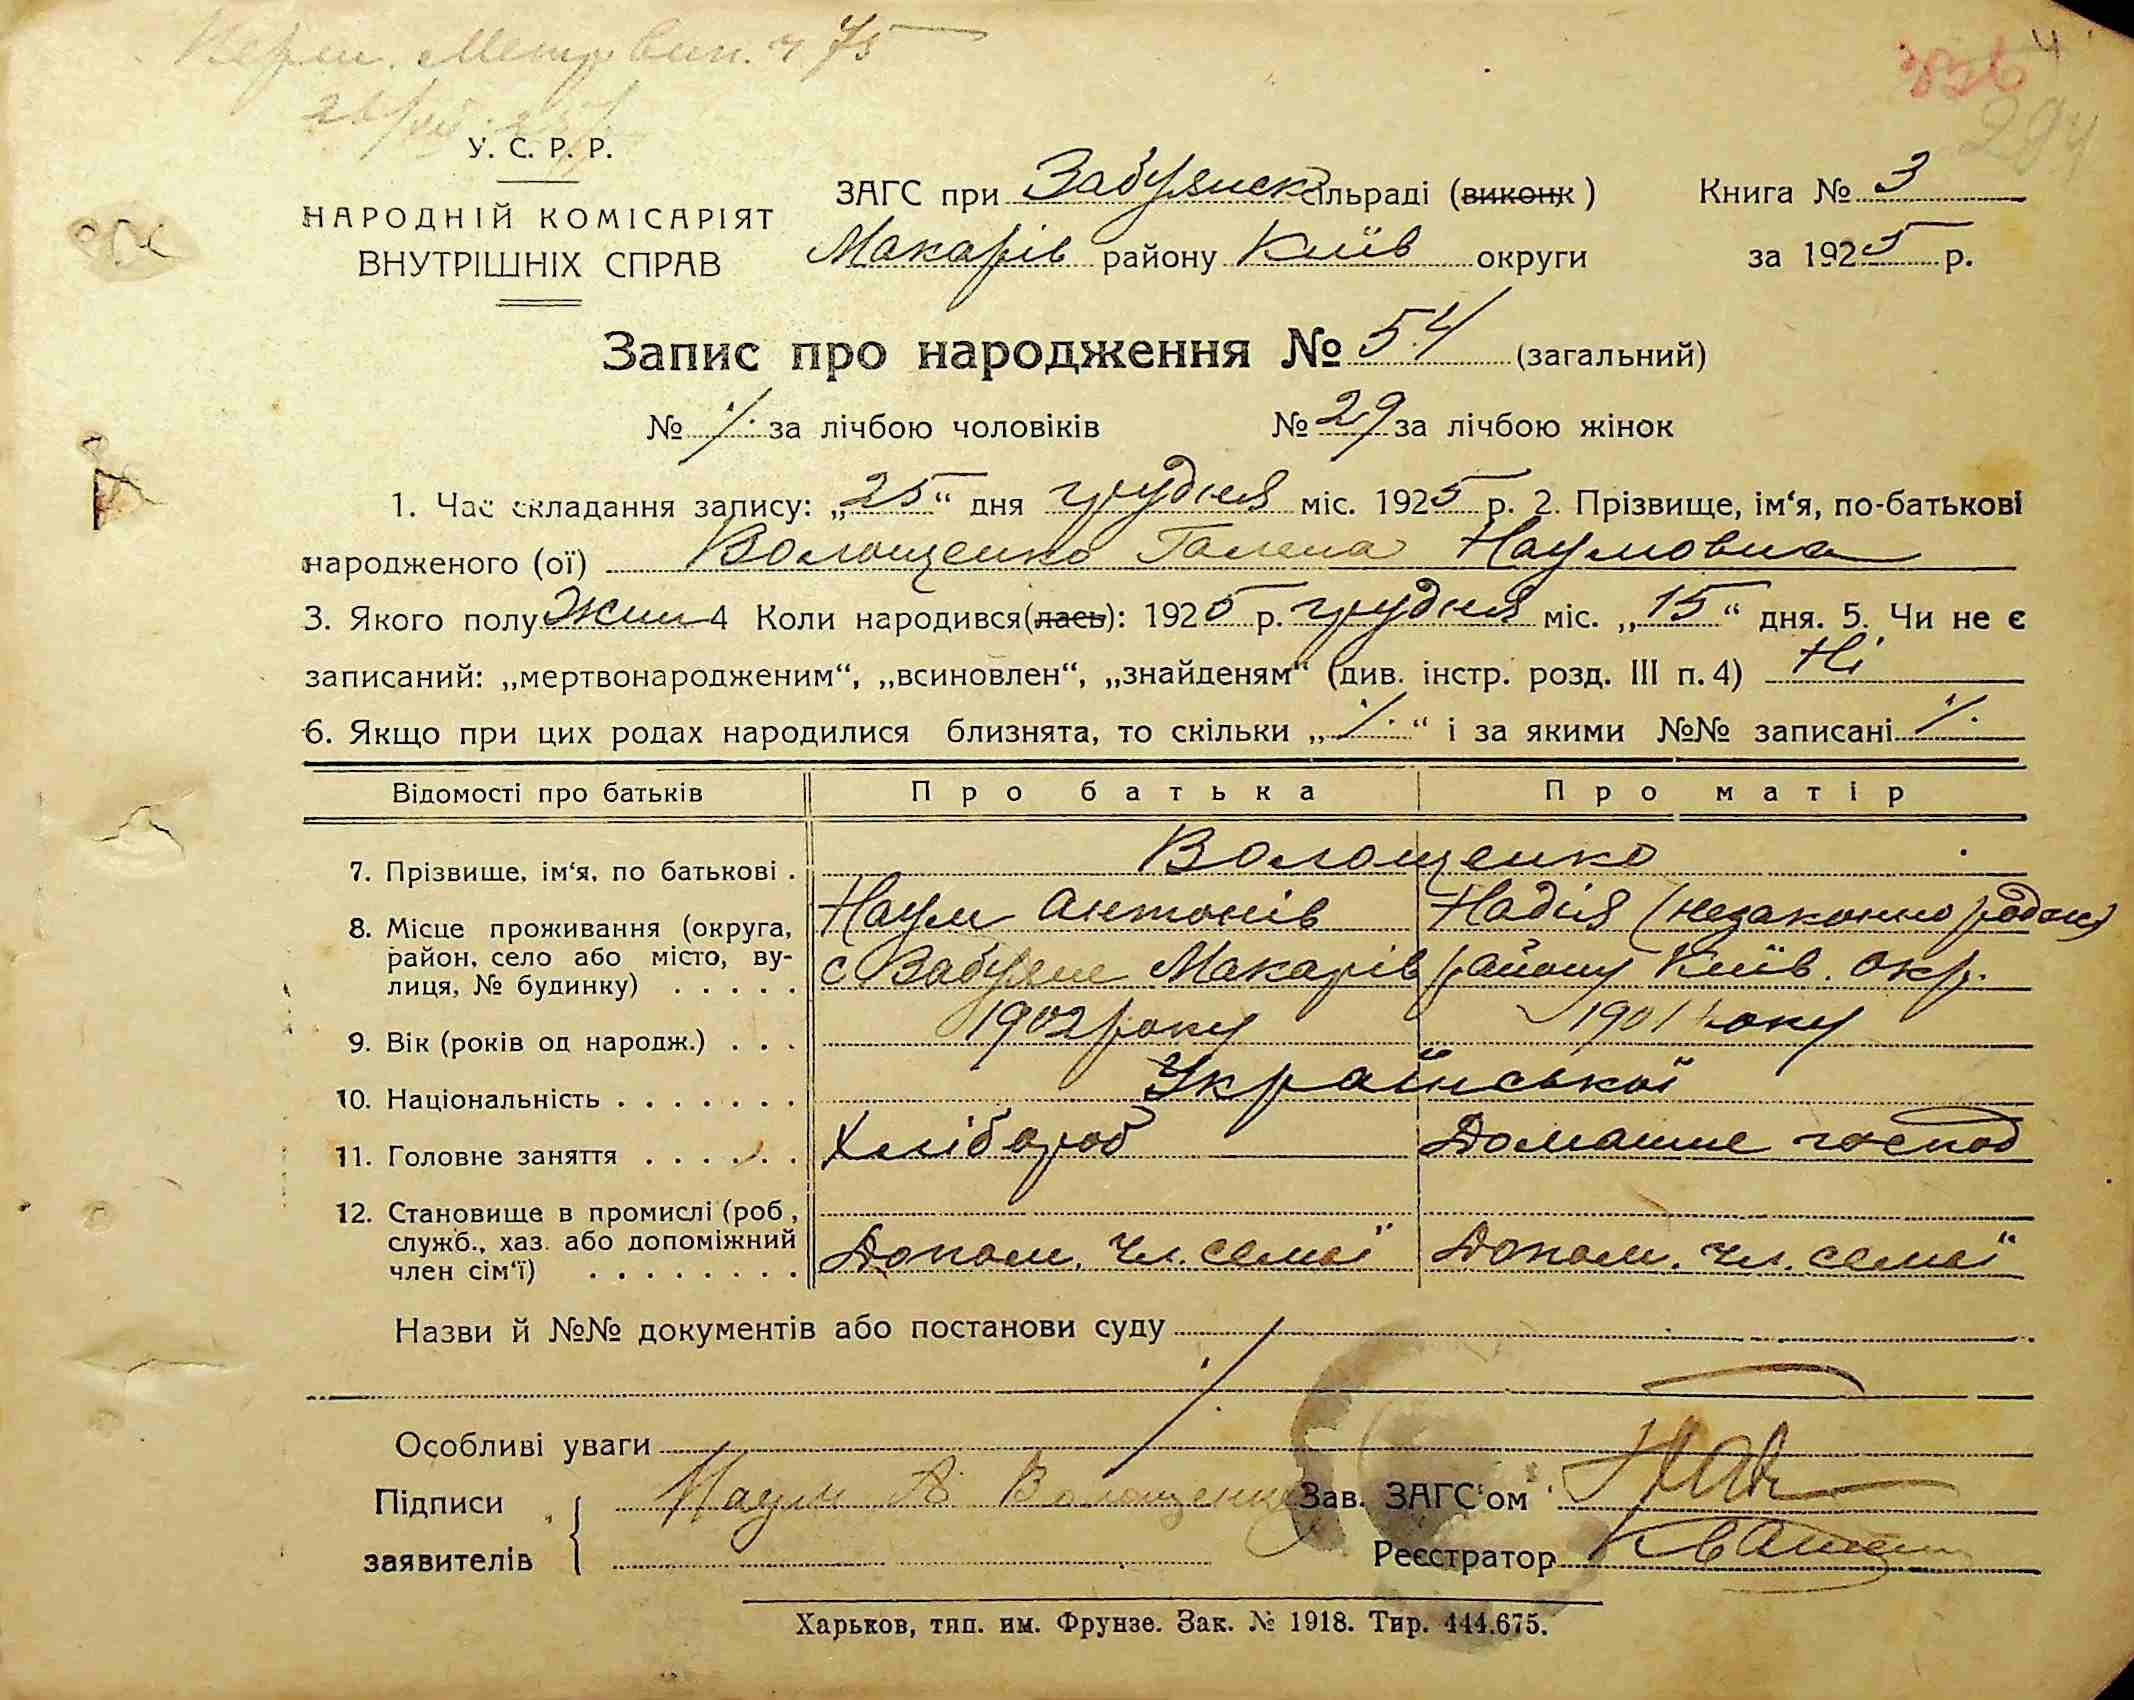 Метр. вип. ч. 75
4
294
У. С. Р. Р.
НАРОДНІЙ КОМІСАРІЯТ
ВНУТРІШНІХ СПРАВ
ЗАГС при Забуянск сільраді (виконк) Книга № 3
Макарів району Київ округи за 1925 р.
Запис про народження № 54 (загальний)
№ ٪ за лічбою чоловіків № 29 за лічбою жінок
1. Час складання запису: „25“ дня грудня міс. 1925 р. 2. Прізвище, ім‘я, по-батькові
народженого (ої) Волощенко Галена Наумовна
3. Якого полу Жин 4 Коли народився(лась): 1925 р. грудня міс. „15“ дня. 5. Чи не є
записаний: „мертвонародженим“, „всиновлен“, „знайденям“ (див. інстр. розд. III п. 4) Ні
6. Якщо при цих родах народилися близнята, то скільки „٪“ і за якими №№ записані ٪
Відомості про батьків Про батька Про матір
7. Прізвище, ім‘я, по батькові . Волощенко
Наум Антонів Надія (незаконно родж)
8. Місце проживання (округа,
район, село або місто, ву-
лиця, № будинку) . . . . . с Забуяне Макарів району Київ. окр.
9. Вік (років од народж.) . . . 1902 року 1901 року
10. Національність . . . . . . . Української
11. Головне заняття . . . . . . Хлібороб Домашнє господ
12. Становище в промислі (роб,
служб., хаз. або допоміжний
член сім‘ї) . . . . . . . . Допом. чл. семьї Допом. чл. семьї
Назви й №№ документів або постанови суду
Особливі уваги
Підписи Наум А Волощенко Зав. ЗАГС‘ом
заявителів Реєстратор
Харьков, тип. им. Фрунзе. Зак. № 1918. Тир. 444.675.